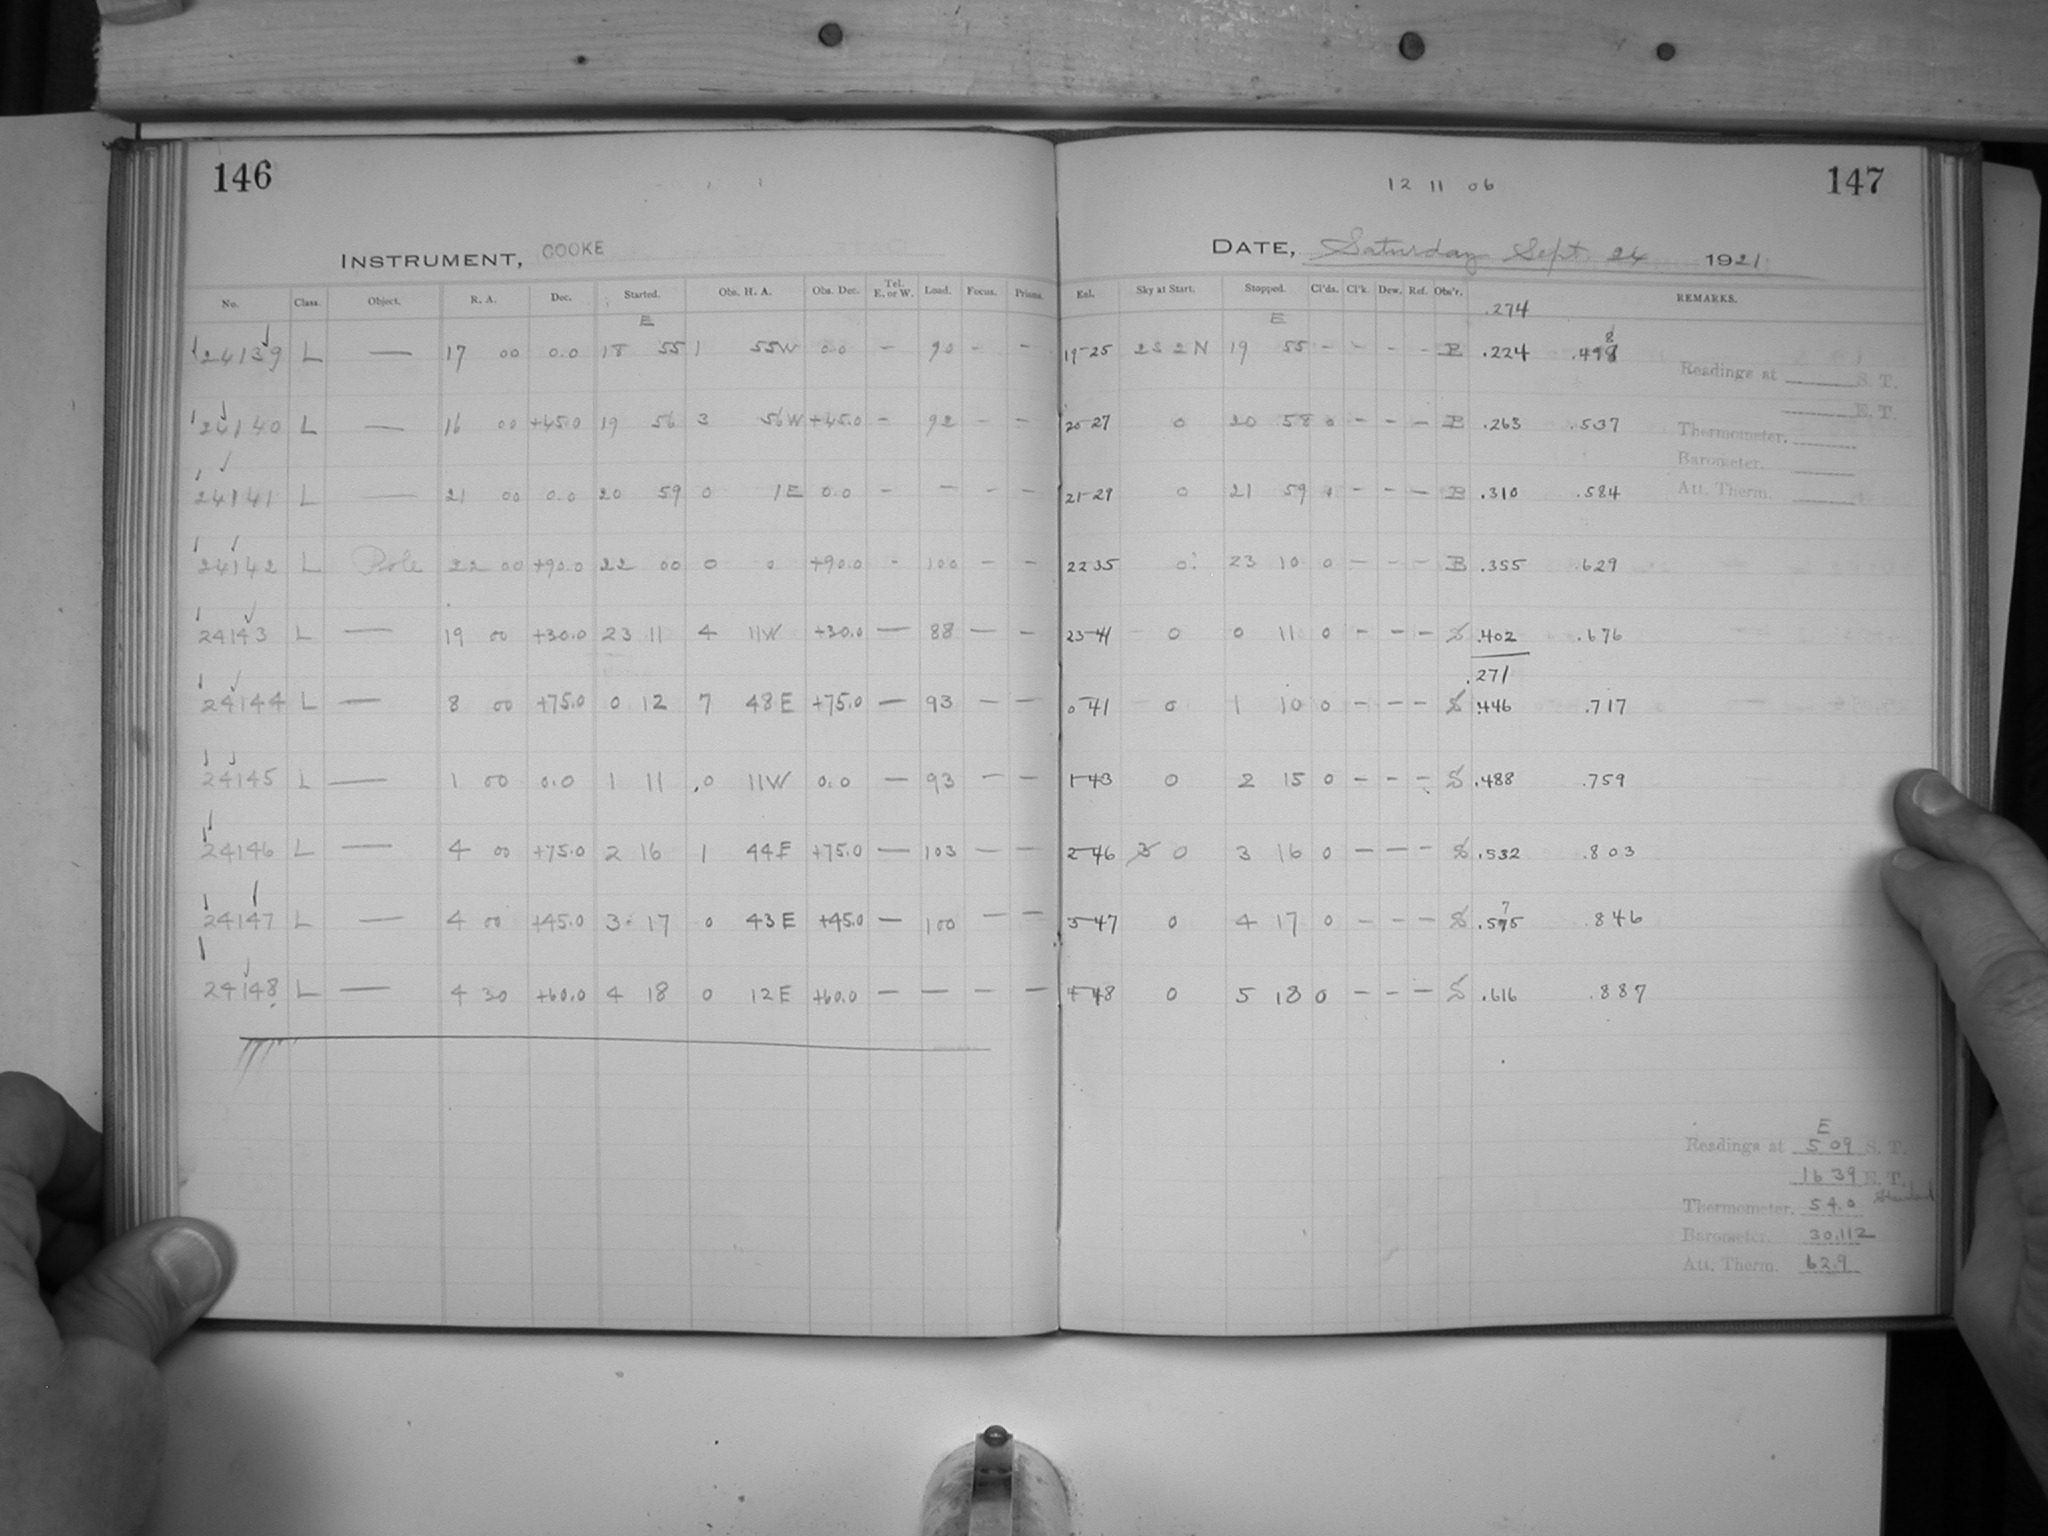 146
INSTRUMENT, COOKE
No. Class. Object. R. A. Dec. Started. Obs. H. A. Obs. Dec. Tel. E. or W. Load. Focus. Prisms.
E
24139 L — 17 00 0.0 18 55 1 55W 0.0 - 90 - -
24140 L — 16 00 +45.0 19 56 3 56W +45.0 - 92 - -
24141 L — 21 00 0.0 20 59 0 1E 0.0 - - - -
24142 L Pole 22 00 +90.0 22 00 0 0 +90.0 - 100 - -
24143 L — 19 00 +30.0 23 11 4 11W +30.0 — 88 — -
24144 L — 8 00 +75.0 0 12 7 48E +75.0 — 93 — —
24145 L — 1 00 0.0 1 11 0 11W 0.0 — 93 — —
24146 L — 4 00 +75.0 2 16 1 44E +75.0 — 103 — —
24147 L — 4 00 +45.0 3 17 0 43E +45.0 — 100 — —
24148 L — 4 30 +60.0 4 18 0 12E +60.0 — — — —
12 11 06
147
DATE, Saturday Sept. 24 1921
Exl. Sky at Start. Stopped. Cl'ds. Cl'k. Dew. Ref. Obs'r. REMARKS.
.274
E
19-25 2S 2N 19 55 - - - - B .224 .498
8
20-27 0 20 58 0 - - - B .263 .537
21-29 0 21 59 - - - B .310 .584
22 35 0 23 10 0 - - - B .355 .629
23-41 0 0 11 0 - - - S .402 .676
.271
0-41 0 1 10 0 - - - S .446 .717
1-43 0 2 15 0 - - - S .488 .759
2-46 3 0 3 16 0 - - - S .532 .803
7
3-47 0 4 17 0 - - - S .575 .846
4-48 0 5 18 0 - - - S .616 .887
Readings at S. T.
E. T.
Thermometer.
Barometer.
Att. Therm.
E
Readings at 5 09 S. T.
16 39 E. T.
Standard
Thermometer. 54.0
Barometer. 30.112
Att. Therm. 62.9